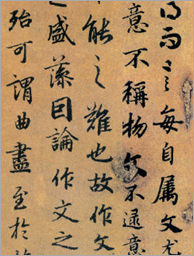 得而言每自屬文尤
意不稱物文不逮意
能之難也故作文
盛藻因論作文之
殆可謂曲盡至於